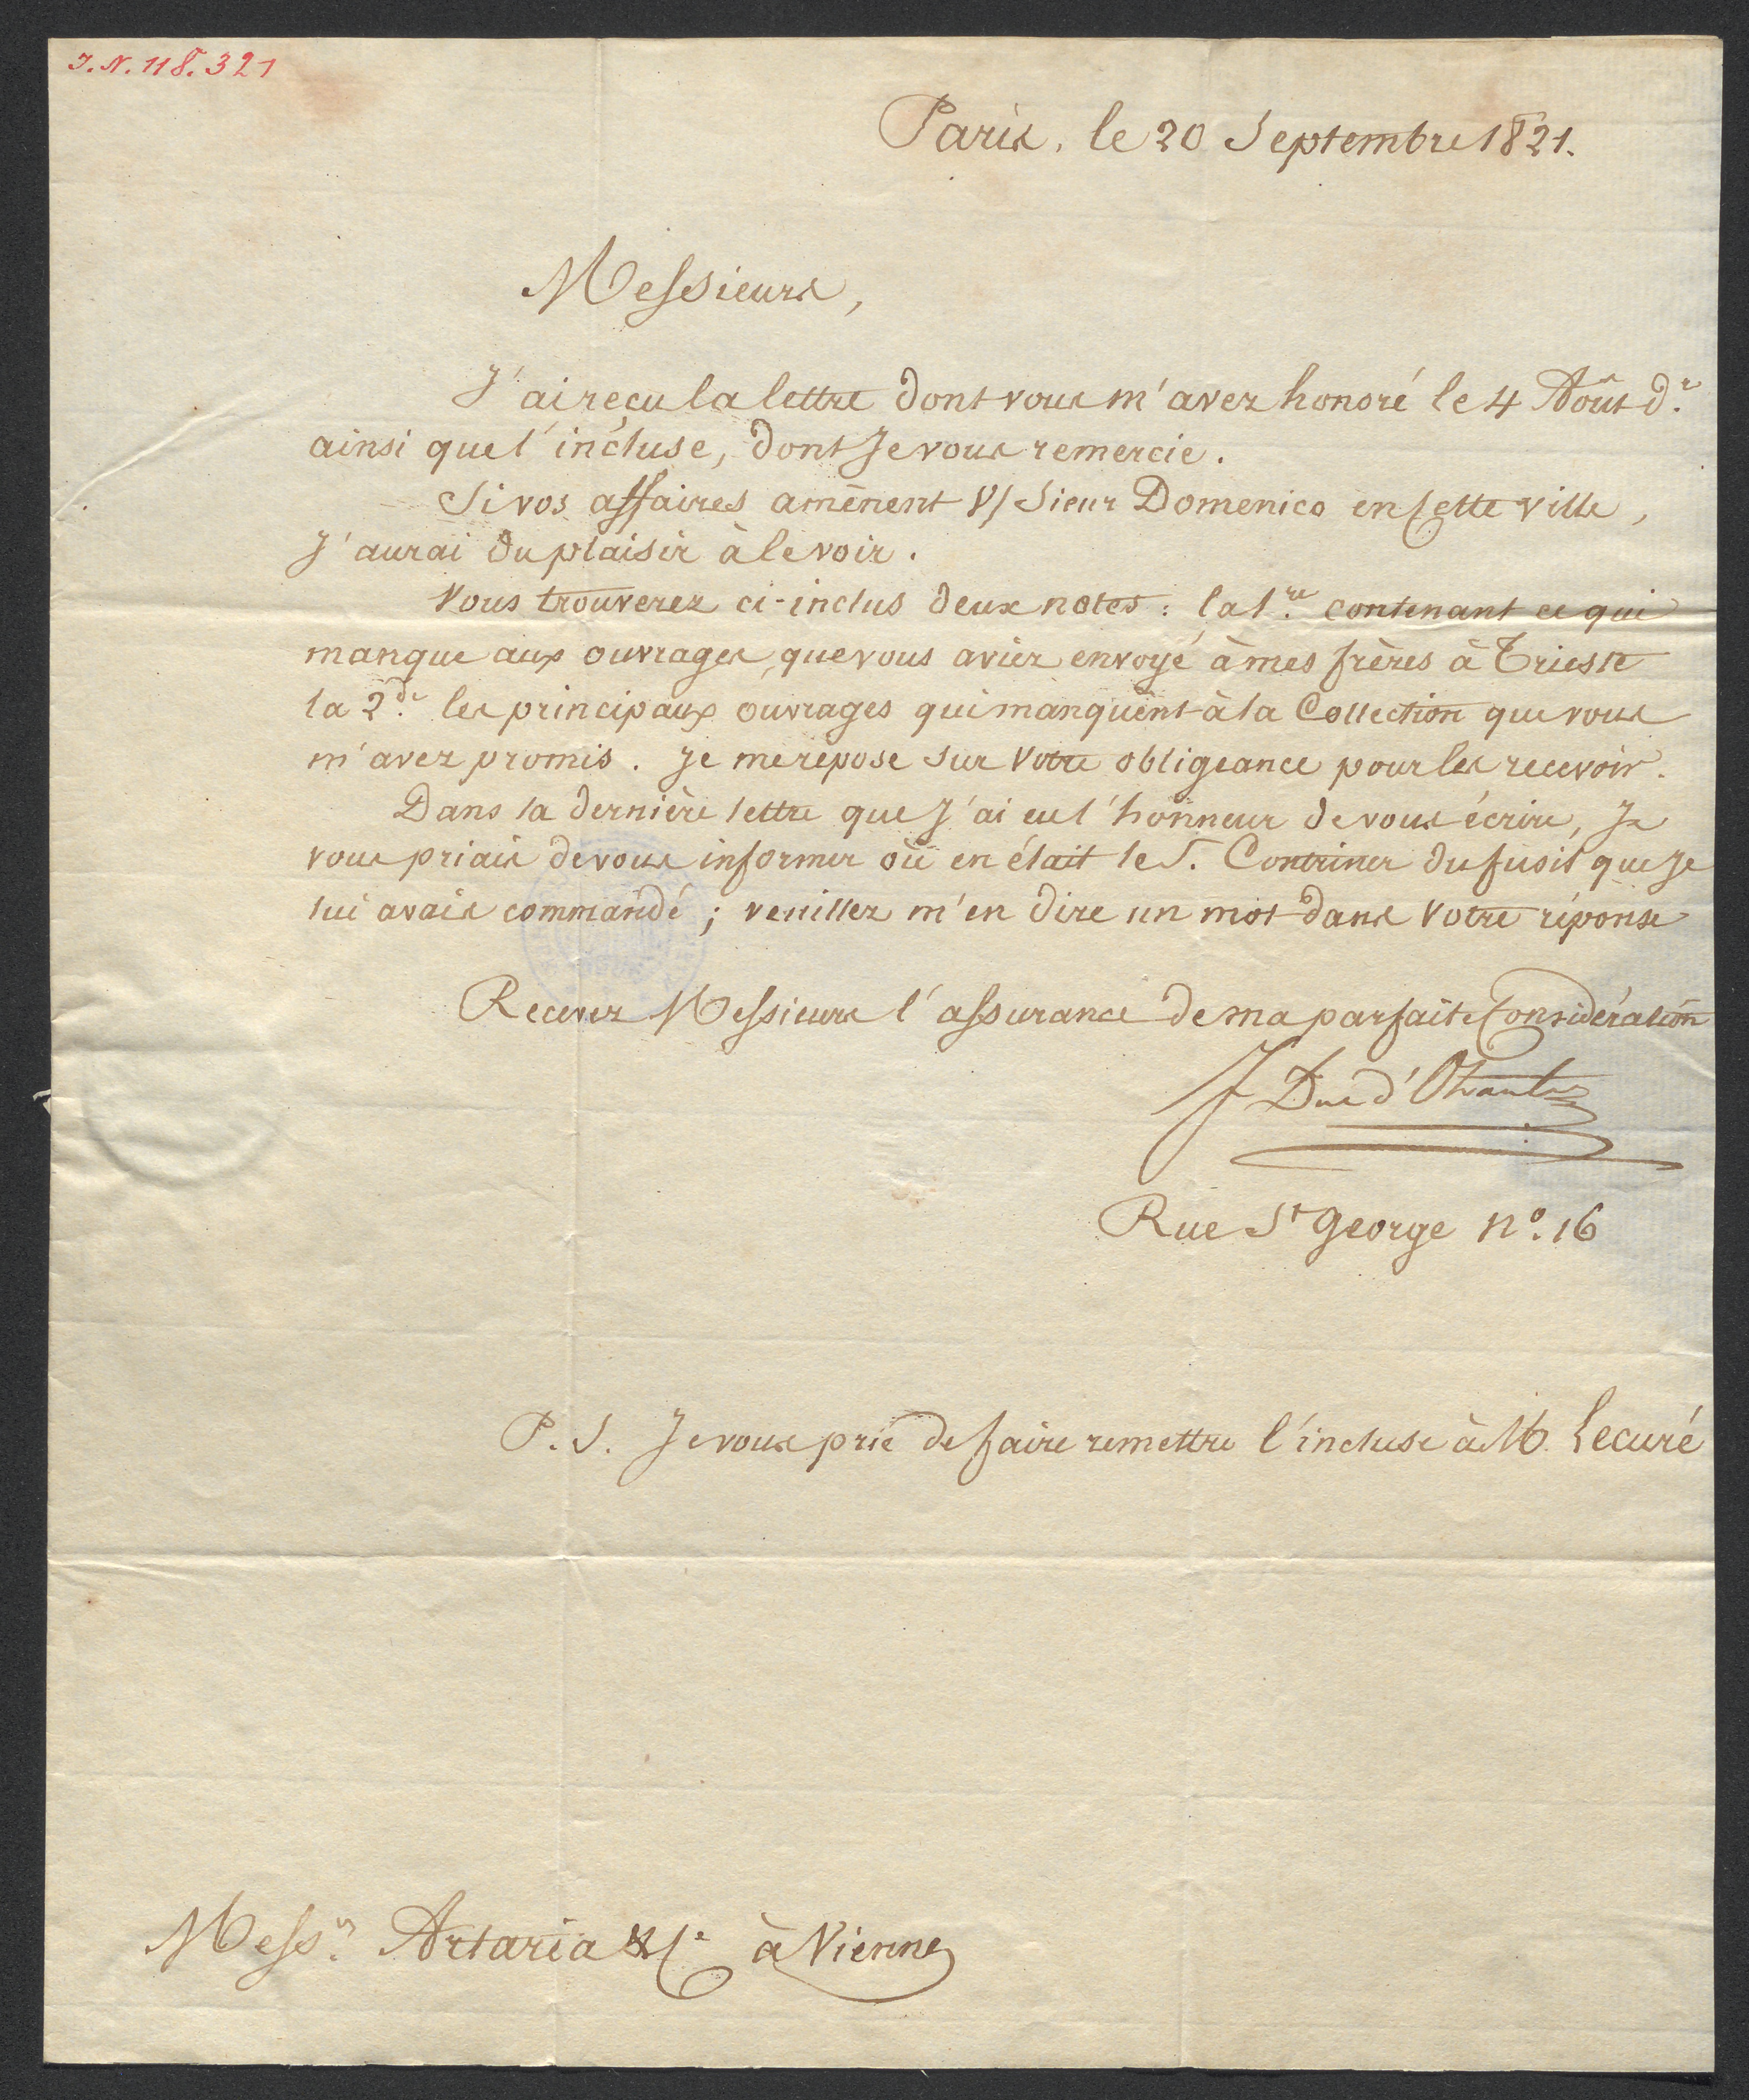 J.N. 118.321
Paris, le 20 Septembre 1821.
Messieurs,
J'ai reçu la lettre dont vous m'avez honoré le 4 Août d.r
ainsi que l'incluse, dont Je vous remercie.
Si vos affaires amènent V/ Sieur Domenico en Cette ville,
J'aurai du plaisir à le voir.
Vous trouverez ci-inclus deux notes: la 1.re contenant ce qui
manque aux ouvrages, que vous aviez envoyé à mes frères à Trieste
la 2.de les principaux ouvrages qui manquent à la Collection que vous
m'avez promis. Je me repose sur Votre obligeance pour les recevoir.
Dans la dernière lettre que J'ai eu l'honneur de vous écrire, Je
vous priais de vous informer où en était le S. Contriner du fusil que Je
lui avais commandé; veuillez m'en dire un mot dans Votre réponse
Recevez Messieurs l'assurance de ma parfaite Considération
J Duc d'Otrante
Rue St George No. 16
P.S. Je vous prie de faire remettre l'incluse à M. Lecuré
Mess.rs Artaria & C.e à Vienne